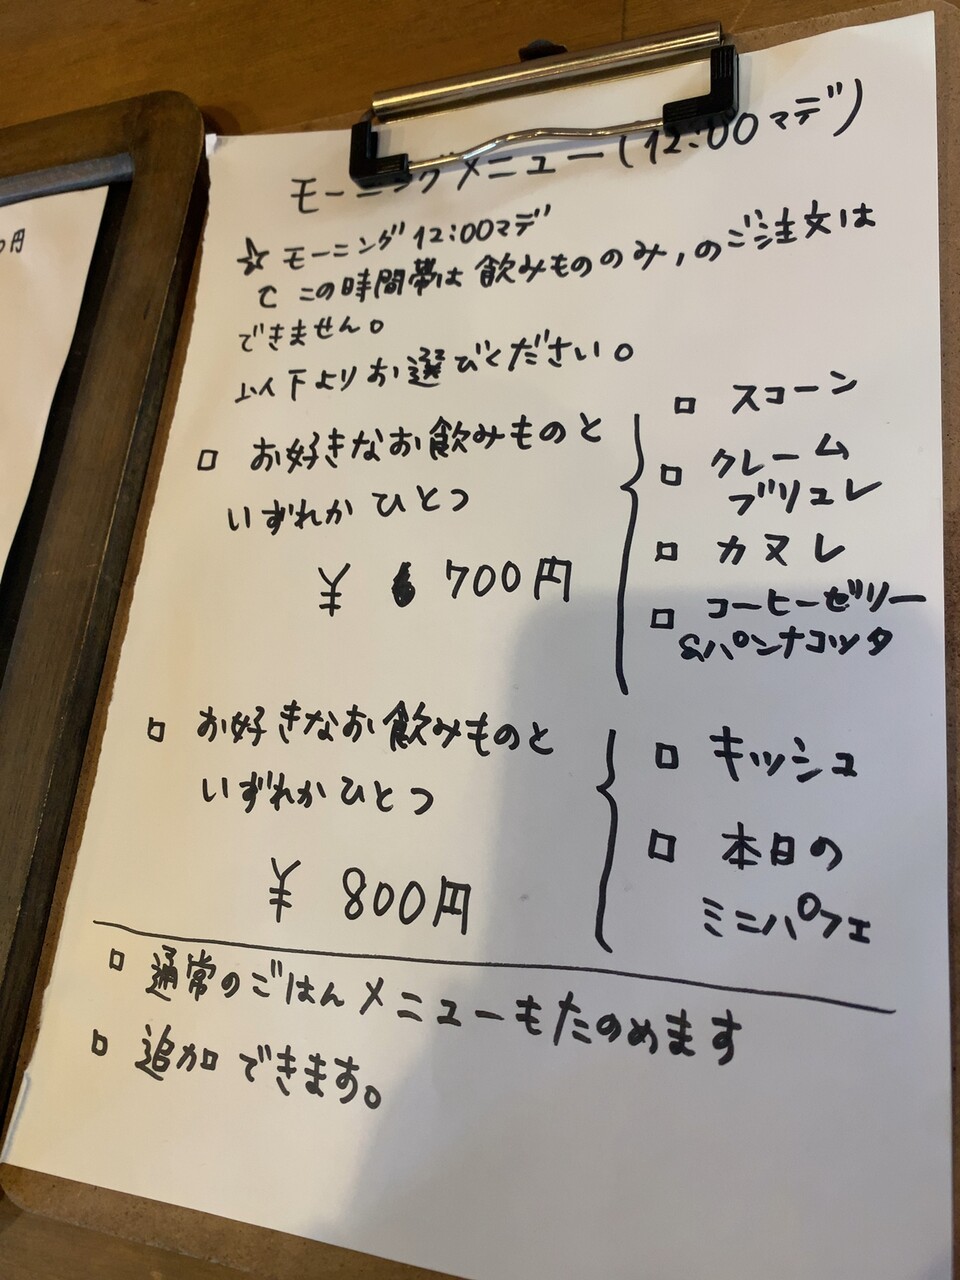 モーニングメニュー(12:00マデ)
☆ モーニング12:00マデ
この時間帯は飲みもののみ,のご注文は
できません。
以下よりお選びください。
□ お好きなお飲みものと
いずれかひとつ
¥ 700円
□ スコーン
□ クレーム
ブリュレ
□ カヌレ
□ コーヒーゼリー
&パンナコッタ
□ お好きなお飲みものと
いずれかひとつ
¥ 800円
□ キッシュ
□ 本日の
ミニパフェ
□ 通常のごはんメニューもたのめます
□ 追加できます。
円